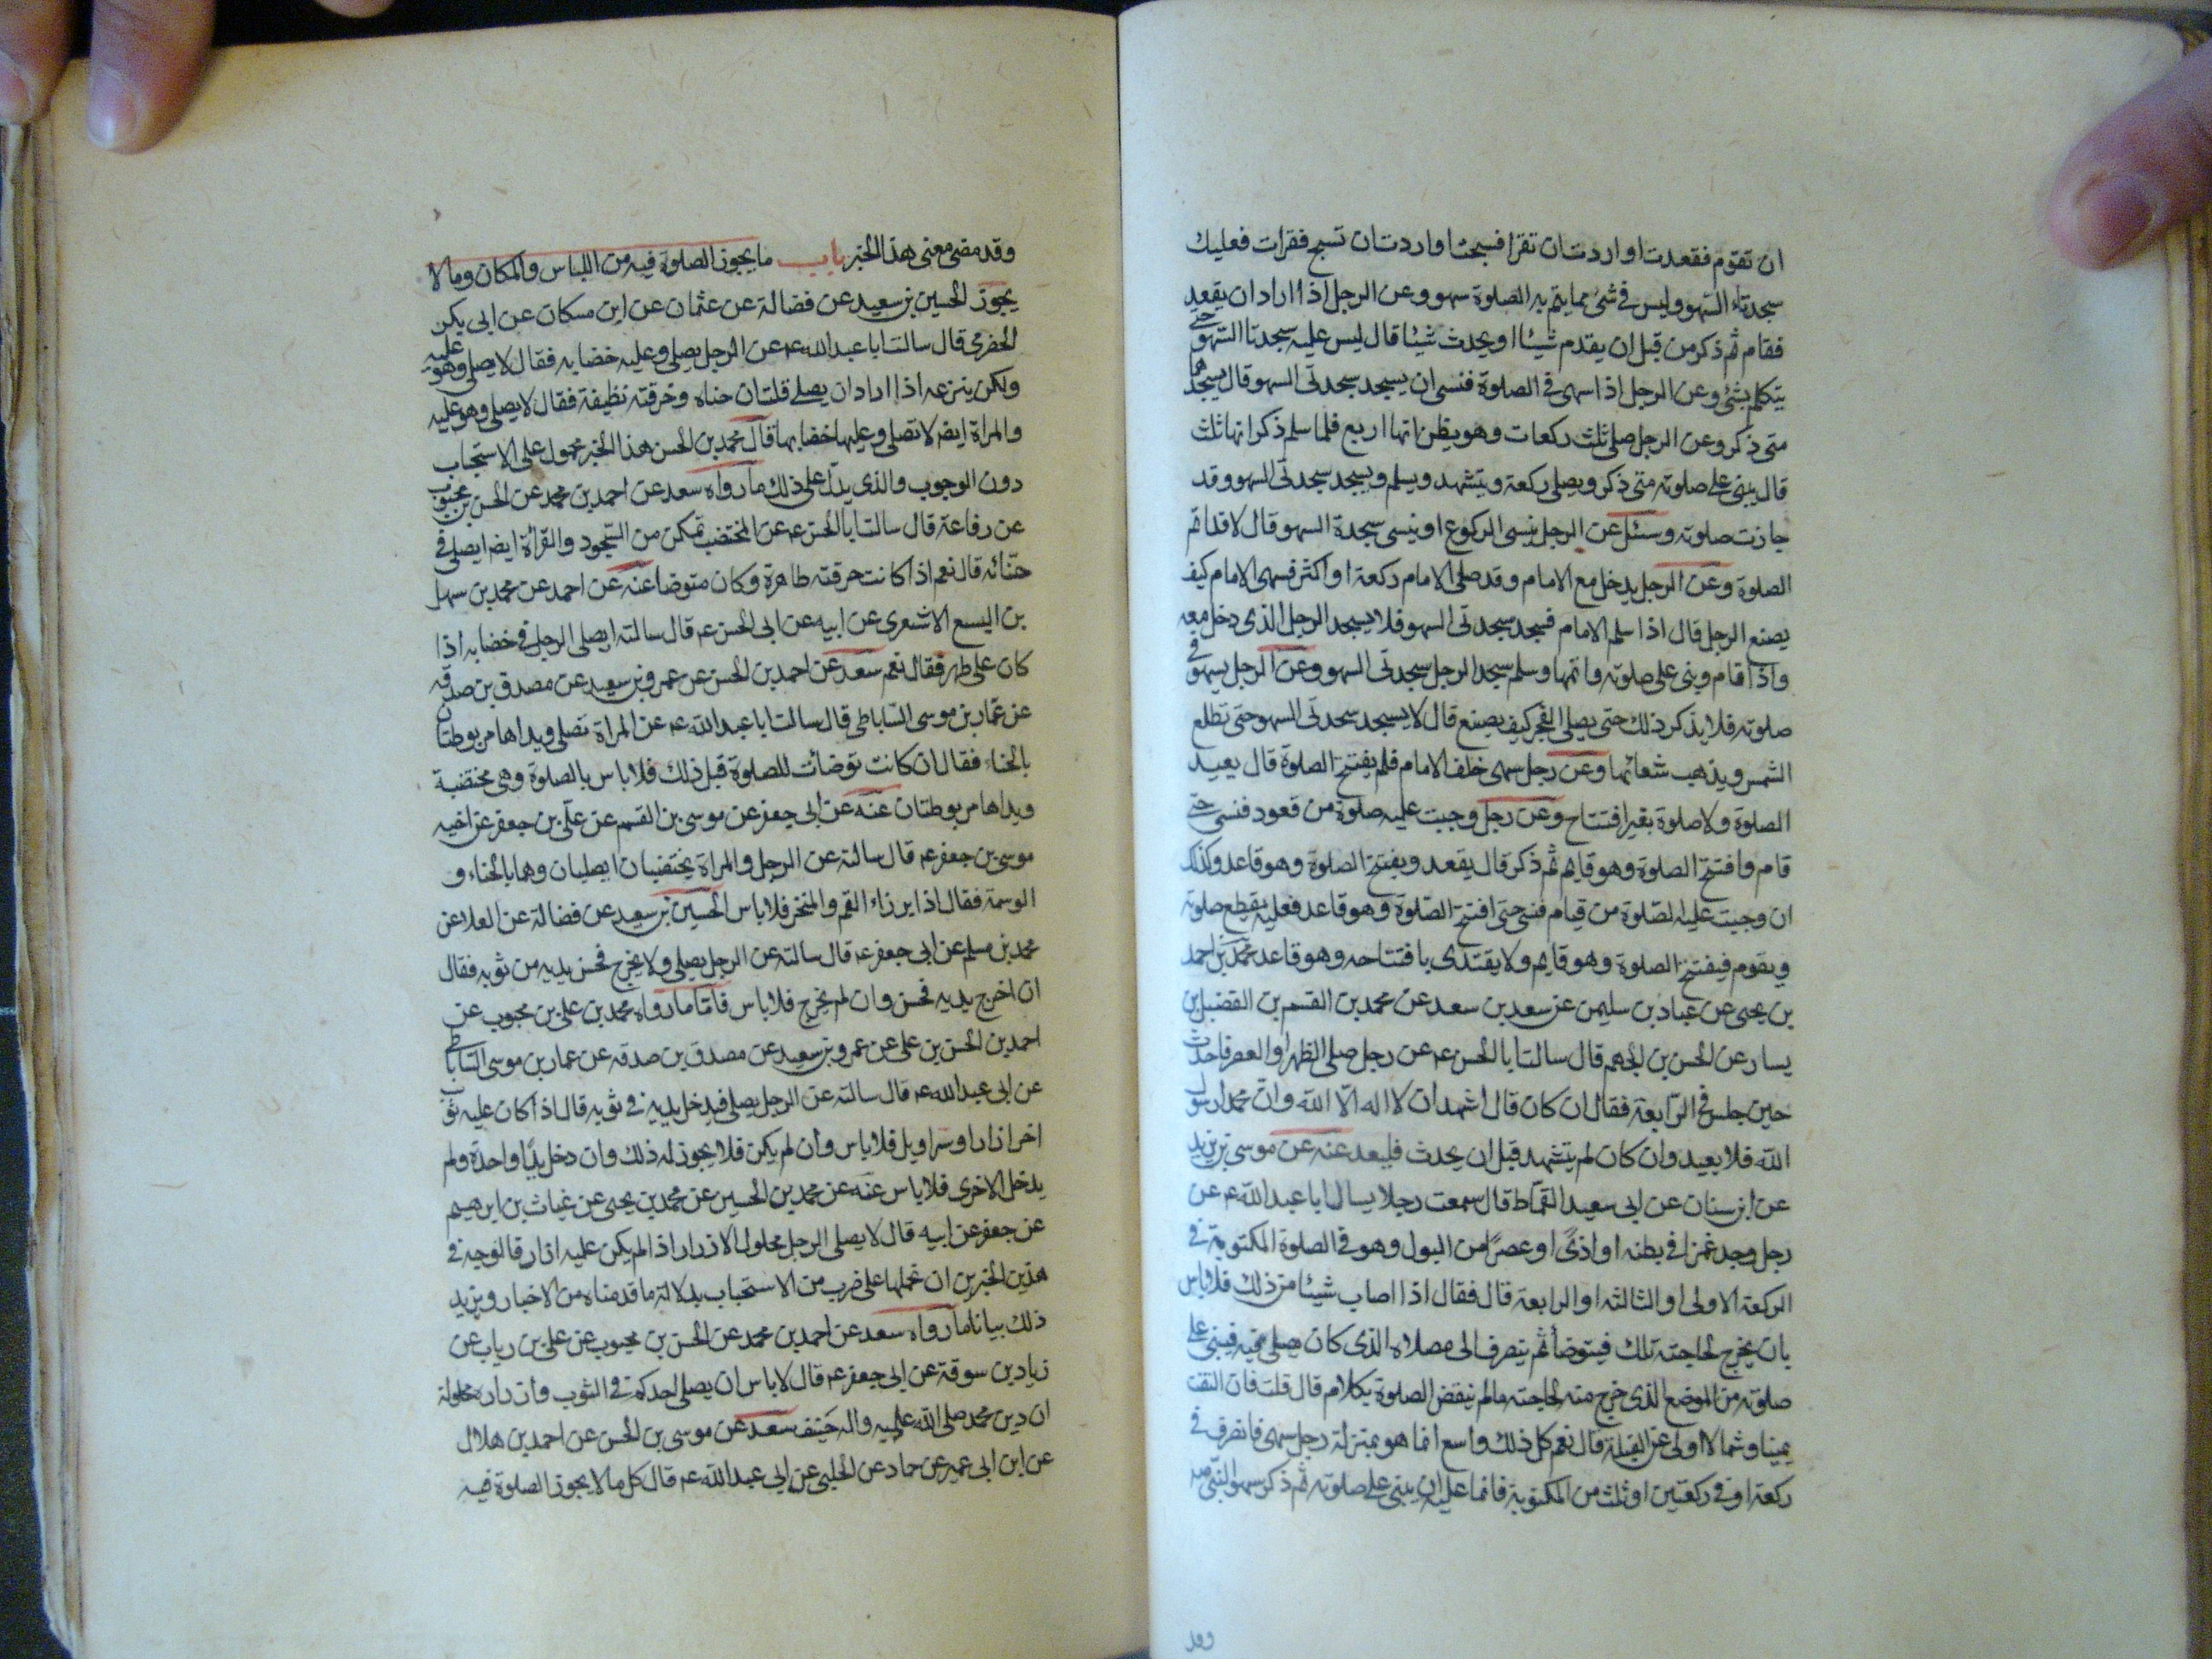 ان تقوم فقعدت او اردت ان تقرا فسبحت او اردت ان تسبح فقرات فعليك
سجدتاء السهو وليس فى شئ مما يتم به الصلوة سهو وعن الرجل اذا اراد ان يقعد
فقام ثم ذكر من قبل ان يقدم شيئا او يحدث شيئا قال ليس عليه سجدتا السهو حتى
يتكلم بشئ وعن الرجل اذا سهى فى الصلوة فنسى ان يسجد سجدتى السهو قال يسجدهما
متى ذكر وعن الرجل صلى ثلث ركعات وهو يظن انها اربع فلما سلم ذكر انها ثلث
قال يبنى على صلوته متى ذكر ويصلى ركعة ويتشهد ويسلم ويسجد سجدتى السهو وقد
جازت صلوته وسئل عن الرجل ينسى الركوع او ينسى سجدة السهو قال لا قد اتم
الصلوة وعن الرجل يدخل مع الامام وقد صلى الامام ركعة او اكثر فسهى الامام كيف
يصنع الرجل قال اذا سلم الامام فسجد سجدتى السهو فلا يسجد الرجل الذى دخل معه
واذا قام وبنى على صلوته واتمها وسلم سجد الرجل سجدتى السهو وعن الرجل يسهو فى
صلوته فلا يذكر ذلك حتى يصلى الفجر كيف يصنع قال لا يسجد سجدتى السهو حتى تطلع
الشمس ويذهب شعائها وعن رجل سهى خلف الامام فلم يفتتح الصلوة قال يعيد
الصلوة ولا صلوة بغير افتتاح وعن رجل وجبت عليه صلوة من قعود فنسى حتى
قام وافتتح الصلوة وهو قايم ثم ذكر قال يقعد ويفتتح الصلوة وهو قاعد وكذلك
ان وجبت عليه الصلوة من قيام فنسى حتى افتتح الصلوة وهو قاعد فعليه يقطع صلوته
ويقوم فيفتتح الصلوة وهو قايم ولا يقتدى بافتتاحه وهو قاعد محمد بن احمد
بن يحيى عن عباد بن سليمن عن سعد بن سعد عن محمد بن القسم بن الفضيل بن
يسار عن الحسن بن الجهم قال سالت ابا الحسن عم عن رجل صلى الظهر او العصر فاحدث
حين جلس فى الرابعة فقال ان كان قال اشهد ان لا اله الا الله وان محمدا رسول
الله فلا يعيد وان كان لم يتشهد قبل ان يحدث فليعد عنه عن موسى بن يزيد
عن ابن سنان عن ابى سعيد القماط قال سمعت رجلا يسال ابا عبد الله عم عن
رجل وجد غمزا فى بطنه او اذى او عصرا من البول وهو فى الصلوة المكتوبة فى
الركعة الاولى او الثالثه او الرابعة قال فقال اذا اصاب شيئا من ذلك فلا باس
بان يخرج لحاجته تلك فيتوضأ ثم ينصرف الى مصلاه الذى كان يصلى فيه فيبنى على
صلوته من الموضع الذى خرج منه لحاجته مالم ينقض الصلوة بكلام قال قلت فان التفت
يمينا وشمالا او ولى عن القبلة قال نعم كل ذلك واسع انما هو بمنزلة رجل سهى فانصرف فى
ركعة او فى ركعتين او ثلث من المكتوبة فانما عليه ان يبنى على صلوته ثم ذكر سهو النبى صه
وقد
وقد مضى معنى هذا الخبر باب ما يجوز الصلوة فيه من اللباس والمكان وما لا
يجوز الحسين بن سعيد عن فضالة عن عثمان عن ابن مسكان عن ابى بكر
الحضرمى قال سالت ابا عبد الله عم عن الرجل يصلى وعليه خضابه فقال لا يصلى وهو عليه
ولكن ينزعه اذا اراد ان يصلى قلت ان حناه وخرقته نظيفة فقال لا يصلى وهو عليه
والمراة ايضا لا تصلى وعليها خضابها قال محمد بن الحسن هذا الخبر محمول على الاستحباب
دون الوجوب والذى يدل على ذلك ما رواه سعد عن احمد بن محمد عن الحسن بن محبوب
عن رفاعة قال سالت ابا الحسن عم عن المختضب تمكن من السجود والقرأة ايضا ايصلى فى
حنائه قال نعم اذا كانت خرقته طاهرة وكان متوضا عنه عن احمد عن محمد بن سهل
بن اليسع الاشعرى عن ابيه عن ابى الحسن عم قال سالته ايصلى الرجل فى خضابه اذا
كان على طهر فقال نعم سعد عن احمد بن الحسن عن عمرو بن سعيد عن مصدق بن صدقه
عن عمار بن موسى الساباطى قال سالت ابا عبد الله عم عن المراة تصلى ويداها مربوطتان
بالحناء فقال ان كانت توضات للصلوة قبل ذلك فلا باس بالصلوة وهى مختضبة
ويداها مربوطتان عنه عن ابى جعفر عن موسى بن القسم عن على بن جعفر عن اخيه
موسى بن جعفر عم قال سالته عن الرجل والمراة يختضبان ايصليان وهما بالحناء و
الوسمة فقال اذا ابرزاء الفم والمنخر فلا باس الحسين بن سعيد عن فضالة عن العلا عن
محمد بن مسلم عن ابى جعفر عم قال سالته عن الرجل يصلى ولا يخرج يديه من ثوبه فقال
ان اخرج يديه فحسن وان لم يخرج فلا باس فاما ما رواه محمد بن على بن محبوب عن
احمد بن الحسن بن على عن عمرو بن سعيد عن مصدق بن صدقه عن عمار بن موسى الساباطى
عن ابى عبد الله عم قال سالته عن الرجل يصلى فيدخل يديه فى ثوبه قال اذا كان عليه ثوب
اخر ازار او سراويل فلا باس وان لم يكن فلا يجوز له ذلك وان دخل يدا واحدة ولم
يدخل الاخرى فلا باس عنه عن محمد بن الحسين عن محمد بن يحيى عن غياث بن ابرهيم
عن جعفر عن ابيه قال لا يصلى الرجل محلول الازرار اذا لم يكن عليه ازار فالوجه فى
هذين الخبرين ان نحملها على ضرب من الاستحباب بدلالة ما قدمناه من الاخبار ويزيد
ذلك بيانا ما رواه سعد عن احمد بن محمد عن الحسن بن محبوب عن على بن رياب عن
زياد بن سوقة عن ابى جعفر عم قال لا باس ان يصلى احدكم فى الثوب وازراره محلولة
ان دين محمد صلى الله عليه واله حنيف سعد عن موسى بن الحسن عن احمد بن هلال
عن ابن ابى عمير عن حماد عن الحلبى عن ابى عبد الله عم قال كل ما لا يجوز الصلوة فيه